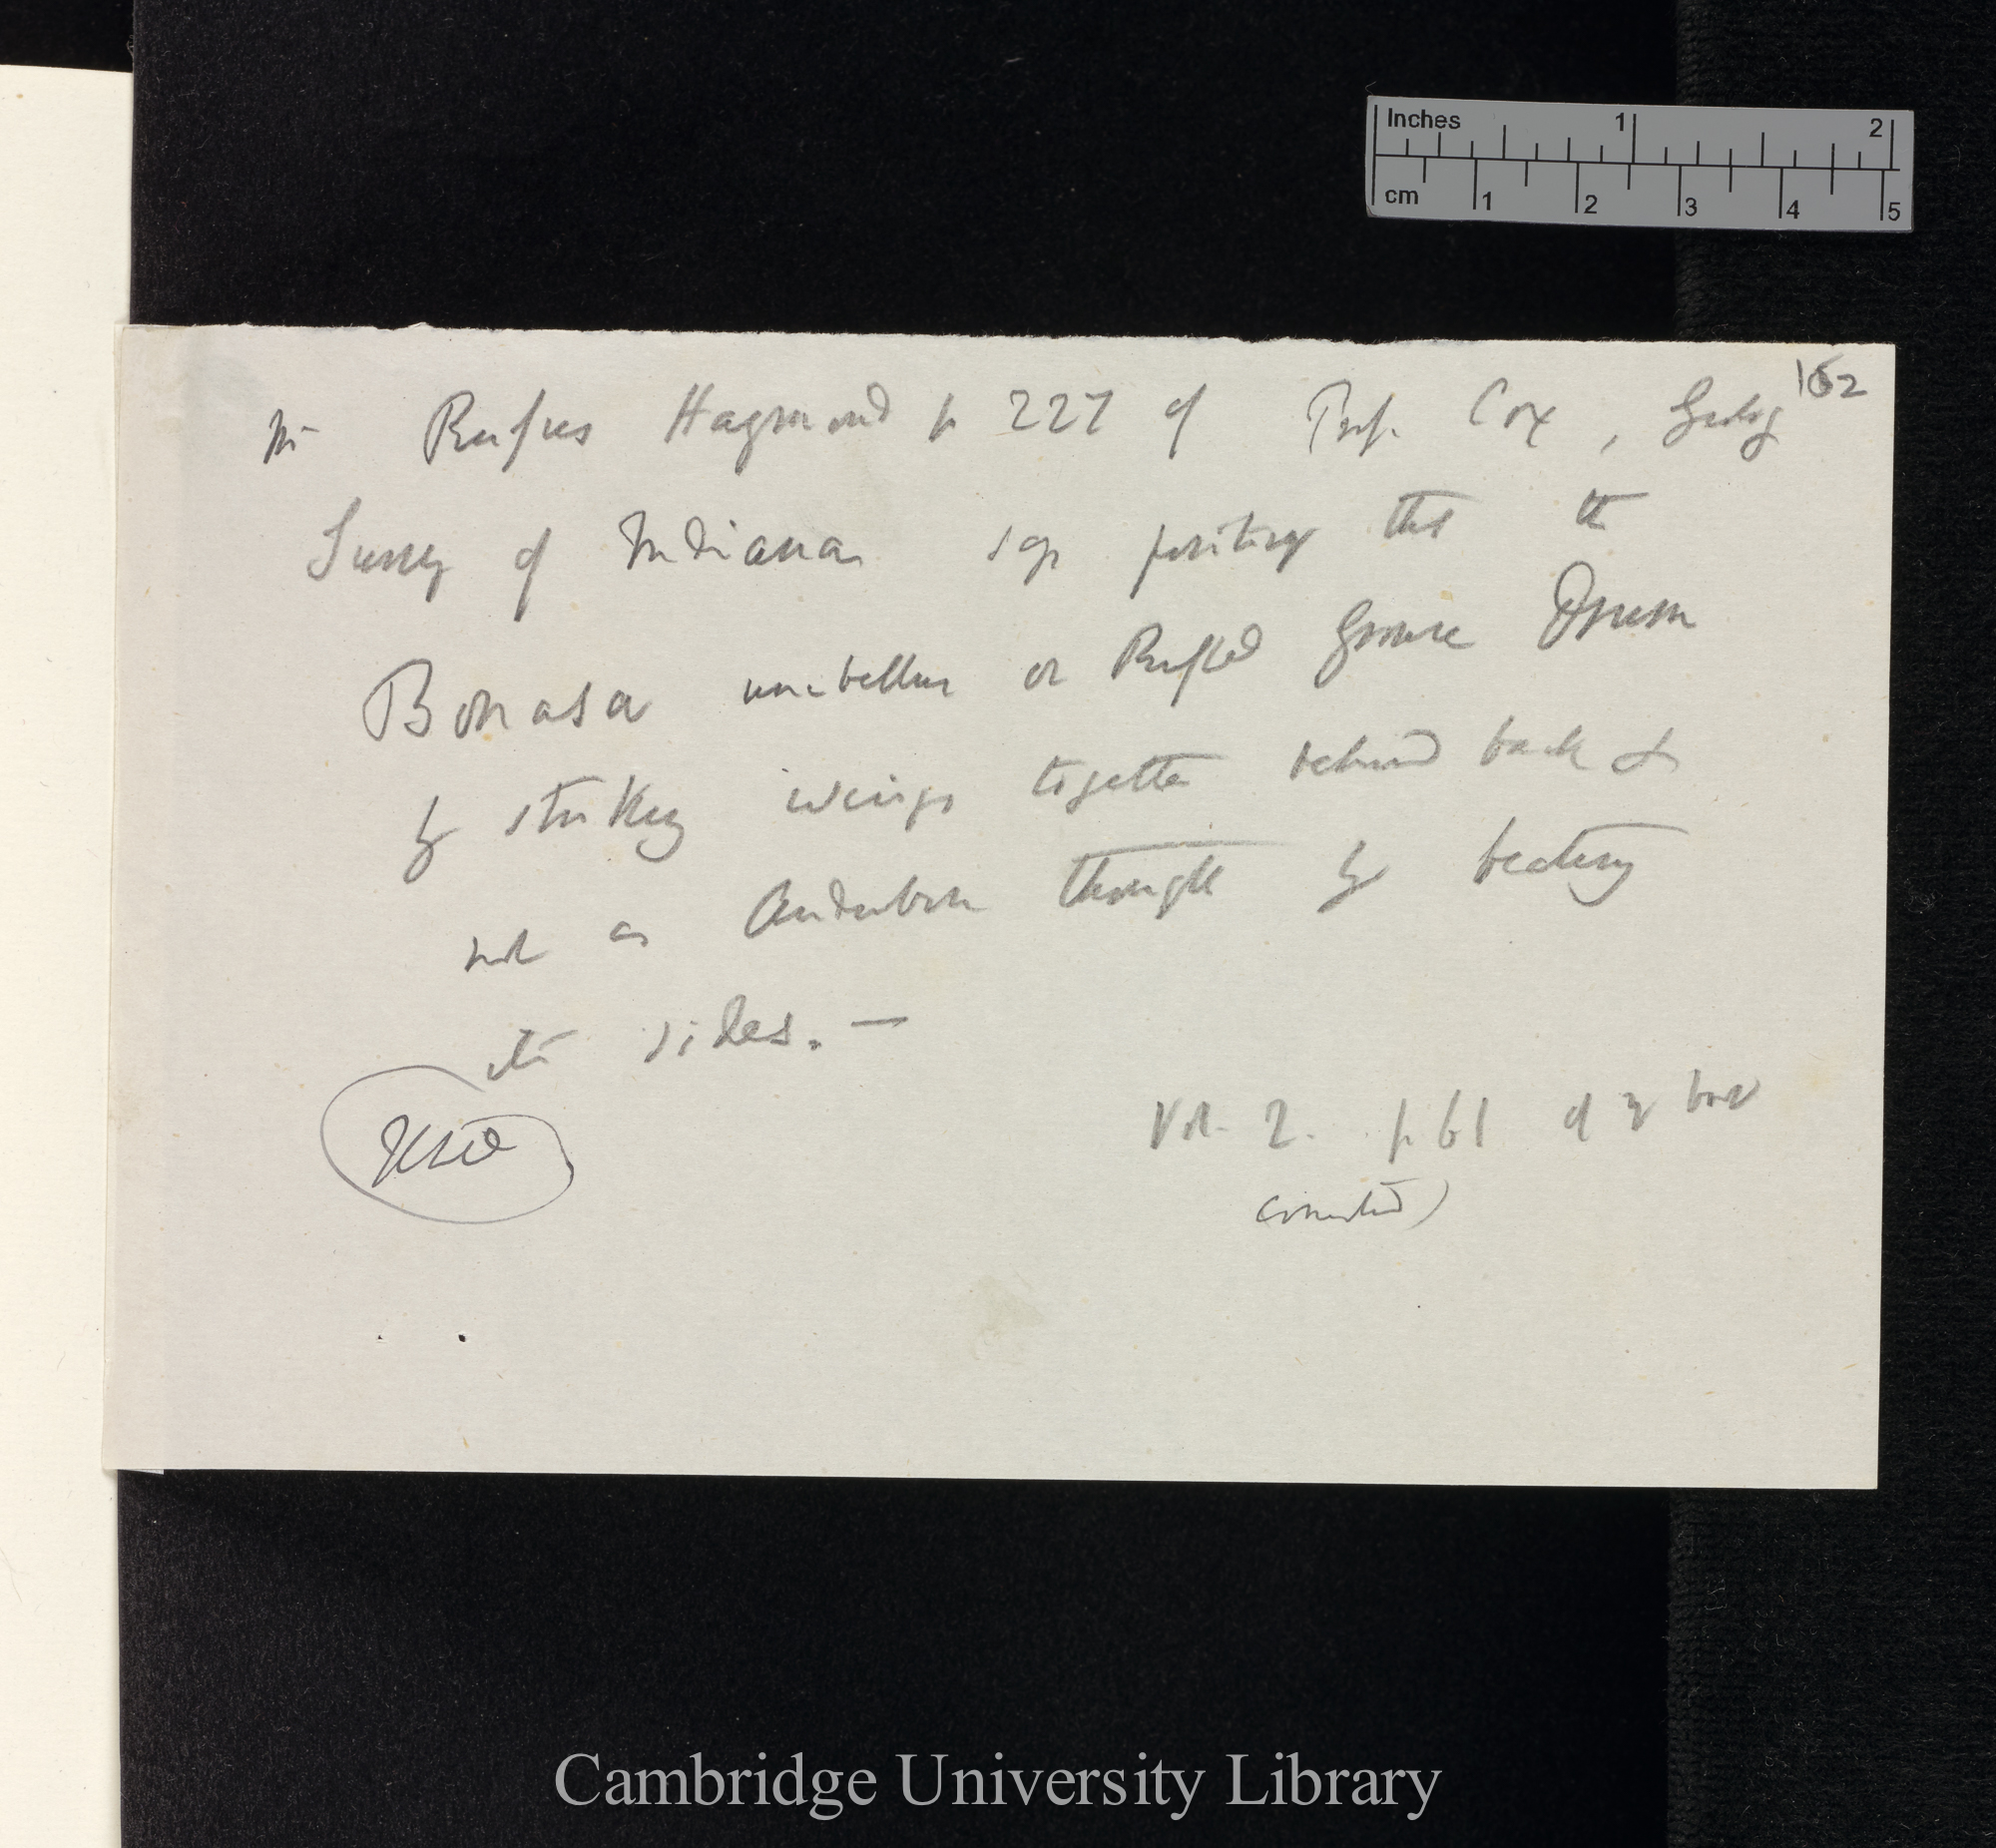 162
Mr Rufus Haymond p 227 of Prof. Cox, Geolog
Survey of Indiana says positively that the
Bonasa umbellus or Ruffed Grouse Drum
by striking wings together behind back &
not as Audubon thought by beating
its sides. —
Used
Vol. 2. p. 61 of my book
(corrected)
Inches 1 2
cm 1 2 3 4 5
Cambridge University Library